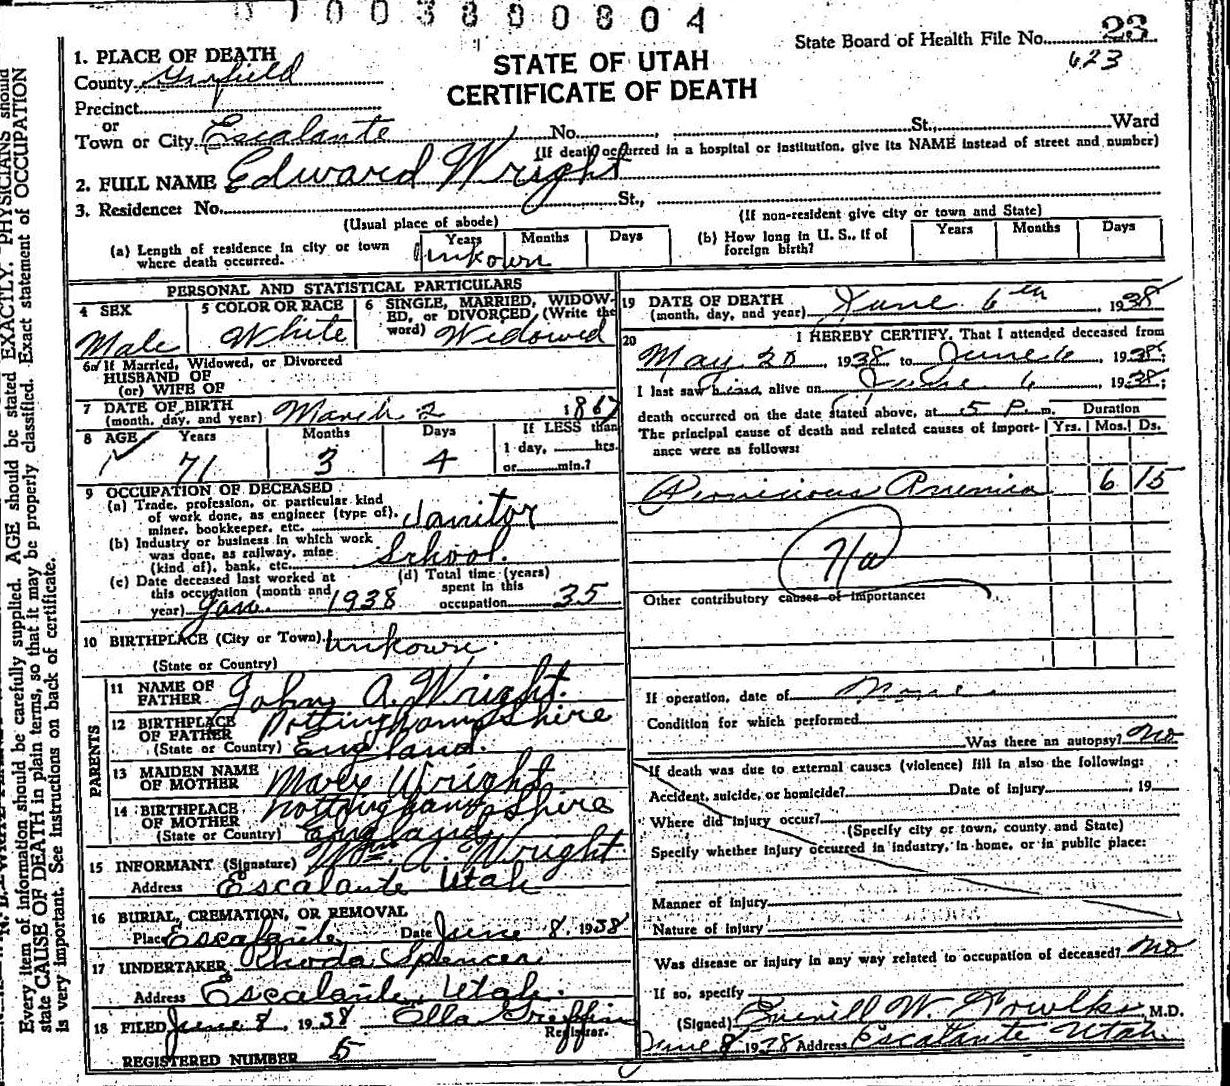 0 7 0 0 3 8 0 0 8 0 4
State Board of Health File No. 23
623
STATE OF UTAH
CERTIFICATE OF DEATH
1. PLACE OF DEATH
County Garfield
Precinct
or
Town or City Escalante No. , St., Ward
(If death occurred in a hospital or institution, give its NAME instead of street and number)
2. FULL NAME Edward Wright
3. Residence: No. St.,
(Usual place of abode) (If non-resident give city or town and State)
(a) Length of residence in city or town where death occurred. Years Months Days
Unkown
(b) How long in U. S., if of foreign birth? Years Months Days
PERSONAL AND STATISTICAL PARTICULARS
4 SEX Male
5 COLOR OR RACE White
6 SINGLE, MARRIED, WIDOWED, or DIVORCED (Write the word) Widowed
6a If Married, Widowed, or Divorced
HUSBAND OF
(or) WIFE OF
7 DATE OF BIRTH
(month, day, and year) March 2 1867
8 AGE Years Months Days If LESS than
71 3 4 1 day, hrs.
or min.?
9 OCCUPATION OF DECEASED
(a) Trade, profession, or particular kind
of work done, as engineer (type of),
miner, bookkeeper, etc. Janitor
(b) Industry or business in which work
was done, as railway, mine
(kind of), bank, etc. School.
(c) Date deceased last worked at
this occupation (month and
year) Jan. 1938
(d) Total time (years)
spent in this
occupation 35
10 BIRTHPLACE (City or Town) Unkown.
(State or Country)
PARENTS
11 NAME OF
FATHER John A. Wright.
12 BIRTHPLACE
OF FATHER Nottinghamshire
(State or Country) England.
13 MAIDEN NAME
OF MOTHER Mary Wright
14 BIRTHPLACE
OF MOTHER Nottinghamshire
(State or Country) England
15 INFORMANT (Signature) Wm. A. Wright
Address Escalante Utah
16 BURIAL, CREMATION, OR REMOVAL
Place Escalante Date June 8. 1938
17 UNDERTAKER Rhoda Spencer
Address Escalante, Utah.
18 FILED June 8, 1938 Ella Griffin
Registrar.
REGISTERED NUMBER 5
19 DATE OF DEATH
(month, day, and year) June 6th 1938
20 I HEREBY CERTIFY, That I attended deceased from
May 20 1938 to June 6, 1938;
I last saw him alive on June 6, 1938;
death occurred on the date stated above, at 5 P. m. Duration
The principal cause of death and related causes of importance were as follows: Yrs. Mos. Ds.
Pernicious Anemia 6 15
Other contributory causes of importance:
If operation, date of None
Condition for which performed
Was there an autopsy? No
If death was due to external causes (violence) fill in also the following:
Accident, suicide, or homicide? Date of injury , 19
Where did injury occur?
(Specify city or town, county and State)
Specify whether injury occurred in industry, in home, or in public place:
Manner of injury
Nature of injury
Was disease or injury in any way related to occupation of deceased? No
If so, specify
(Signed) W. , M.D.
June 8, 1938 Address Escalante Utah
Every item of information should be carefully supplied. AGE should be stated EXACTLY. PHYSICIANS should
state CAUSE OF DEATH in plain terms, so that it may be properly classified. Exact statement of OCCUPATION
is very important. See instructions on back of certificate.